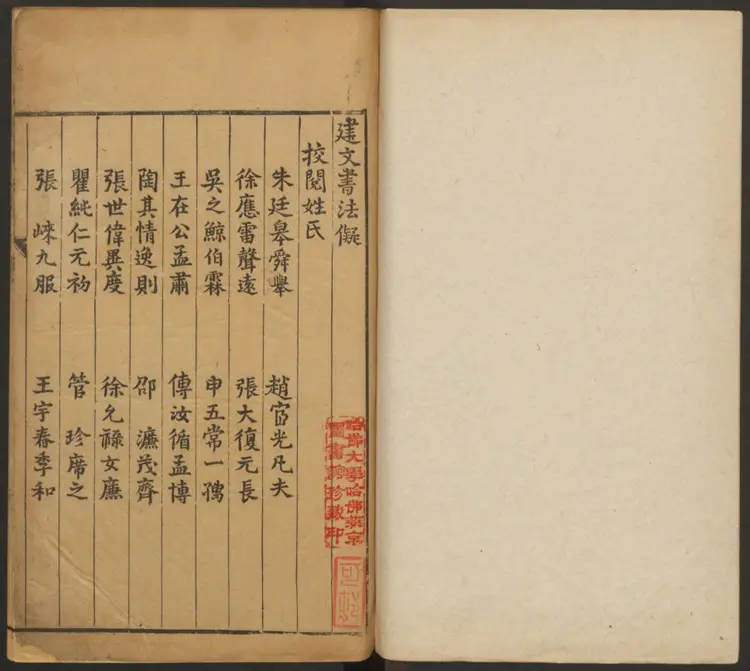 建文書法儗
挍閱姓氏
朱廷皋舜舉 趙宧光凡夫
徐應雷聲遠 張大復元長
吳之鯨伯霖 申五常一孺
王在公孟肅 傳汝循孟博
陶其情逸則 邵濂茂齊
張世偉異度 徐允祿女廉
瞿純仁元初 管珍席之
張崍九服 王宇春季和
哈佛大學哈佛燕京
圖書館珍藏印